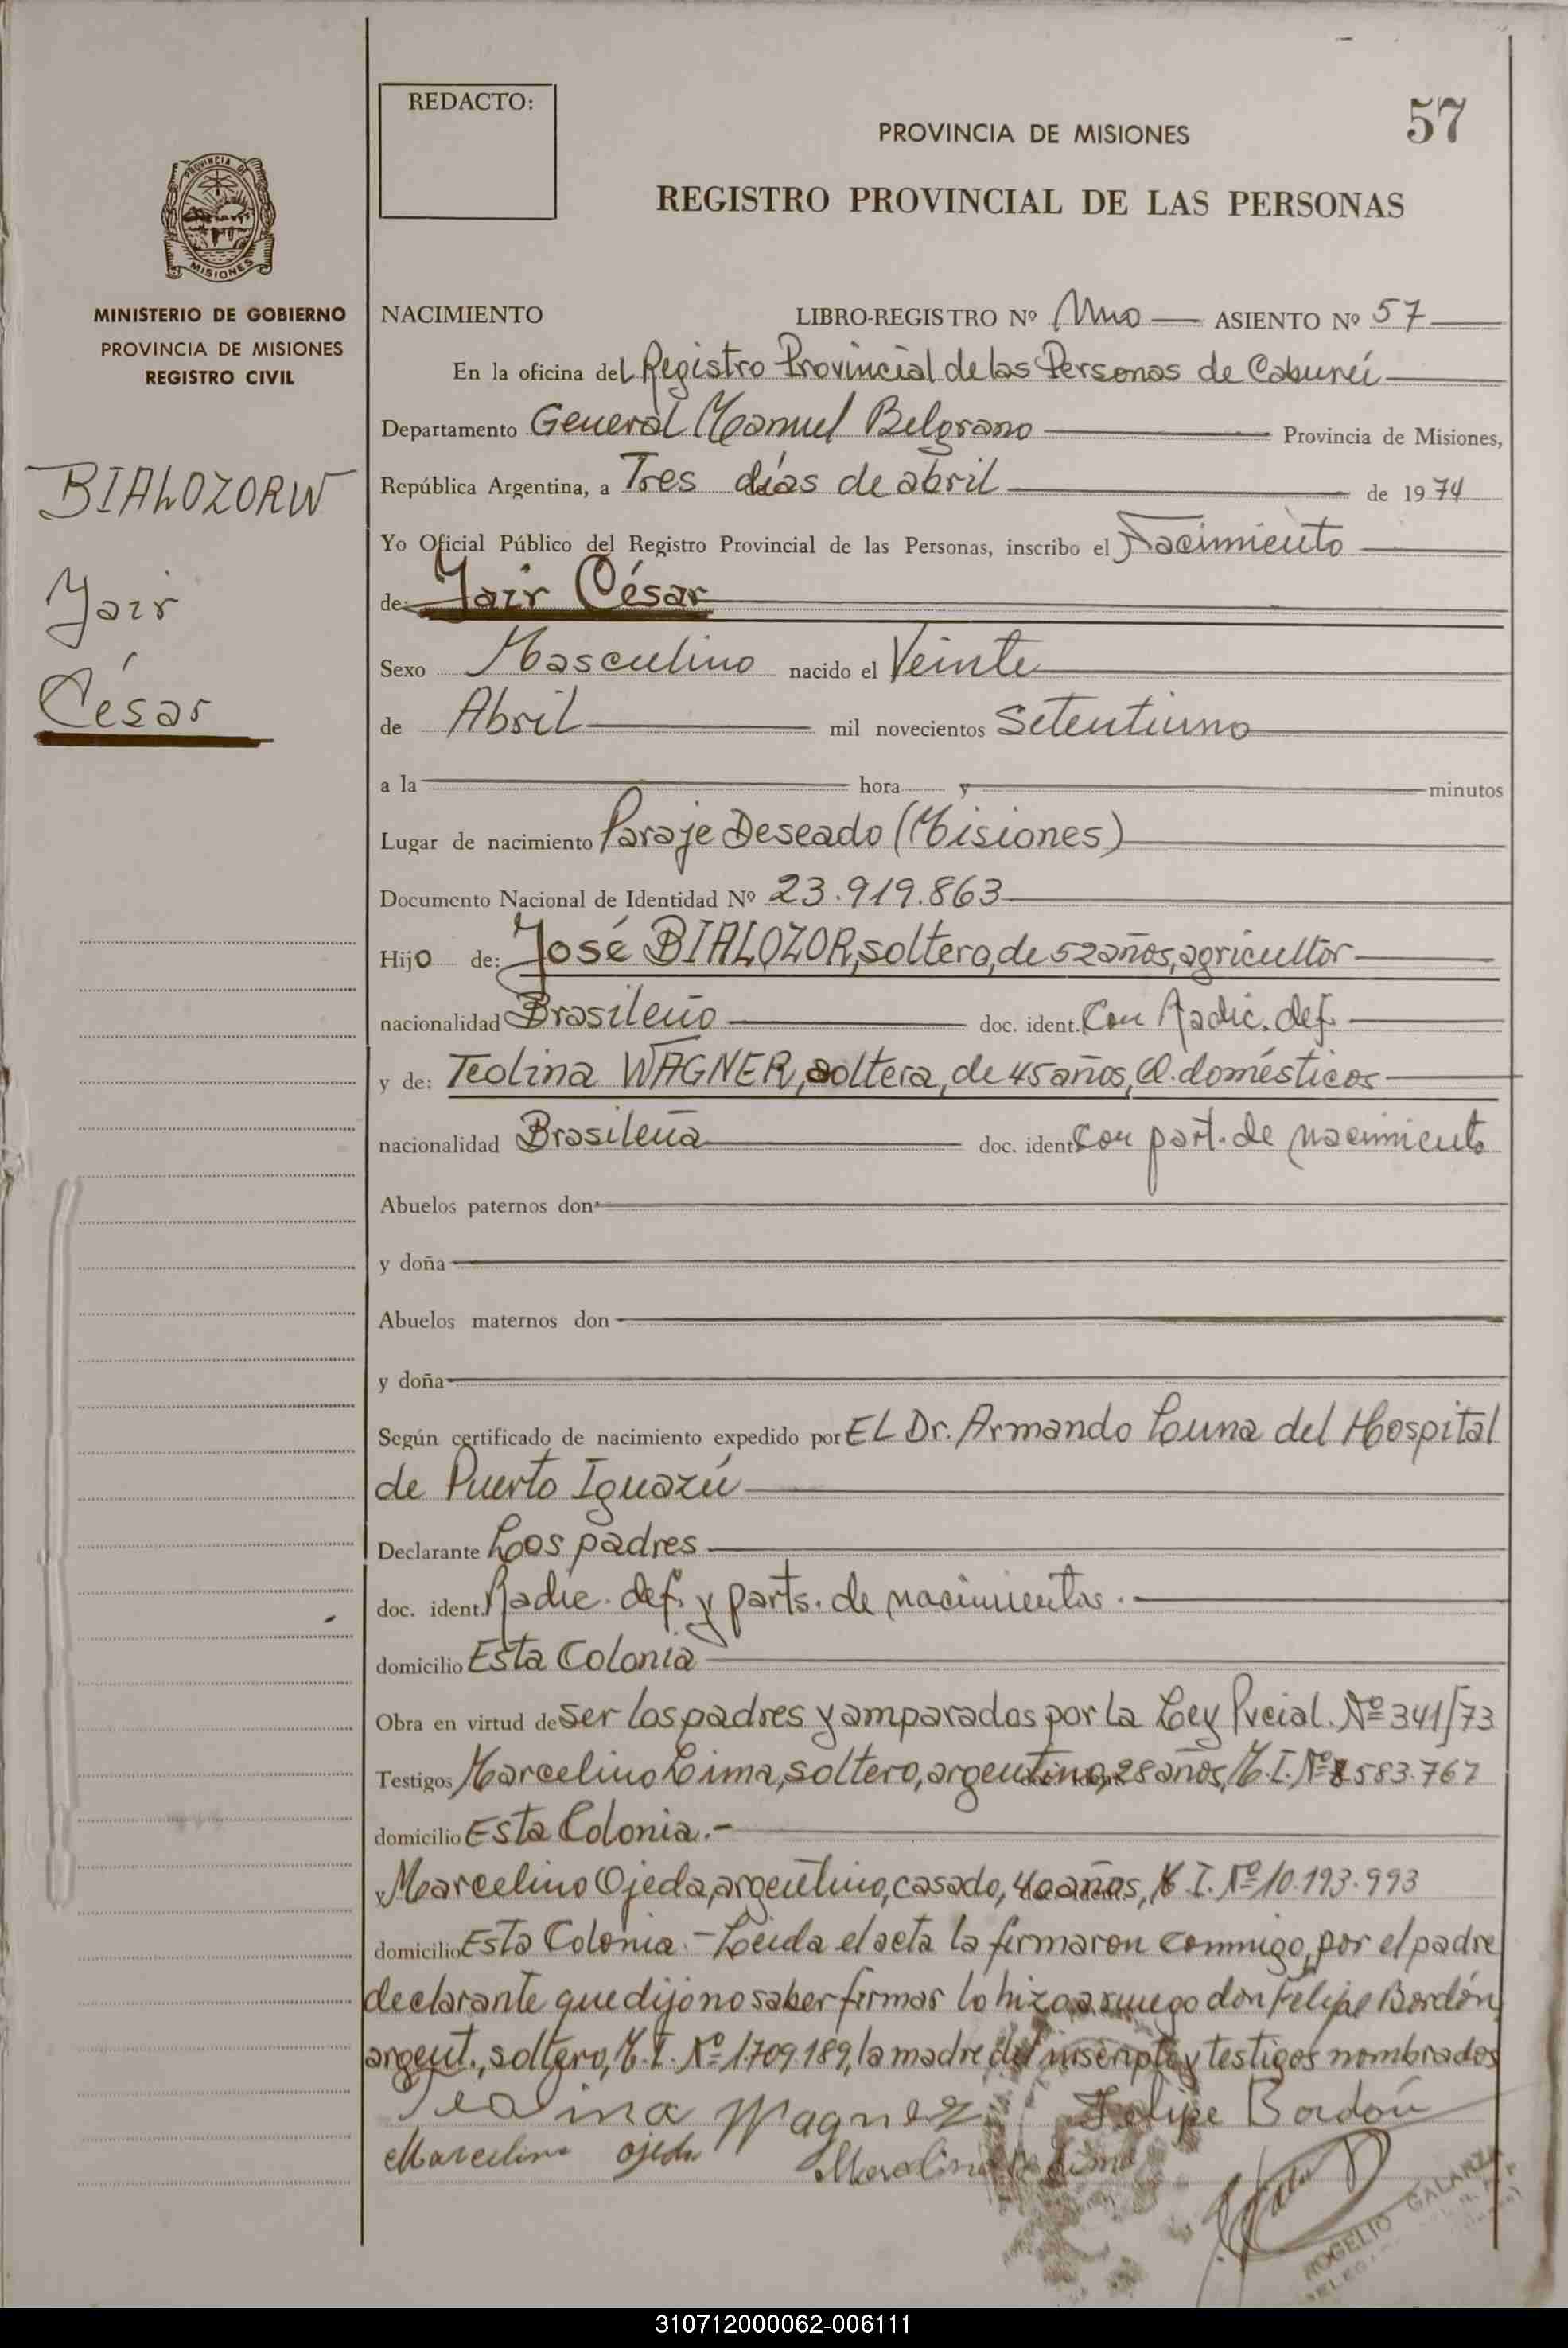 REDACTO:
57
PROVINCIA DE MISIONES
REGISTRO PROVINCIAL DE LAS PERSONAS
PROVINCIA DE
MISIONES
MINISTERIO DE GOBIERNO
PROVINCIA DE MISIONES
REGISTRO CIVIL
BIALOZORW
Jair
César
NACIMIENTO LIBRO-REGISTRO Nº Uno ASIENTO Nº 57
En la oficina del Registro Provincial de las Personas de Caburei
Departamento General Manuel Belgrano Provincia de Misiones,
República Argentina, a Tres días de abril de 1974
Yo Oficial Público del Registro Provincial de las Personas, inscribo el Nacimiento
de: Jair César
Sexo Masculino nacido el Veinte
de Abril mil novecientos Setentiuno
a la hora y minutos
Lugar de nacimiento Paraje Deseado (Misiones)
Documento Nacional de Identidad Nº 23.919.863
Hijo de: José BIALOZOR, soltero, de 52 años, agricultor
nacionalidad Brasileño doc. ident. Con Radic. def.
y de: Teolina WAGNER, soltera, de 45 años, Q. domésticos
nacionalidad Brasileña doc. ident. Con part. de nacimiento
Abuelos paternos don
y doña
Abuelos maternos don
y doña
Según certificado de nacimiento expedido por EL Dr. Armando Luna del Hospital
de Puerto Iguazú
Declarante Los padres
doc. ident. Radic. def. y parts. de nacimientos.
domicilio Esta Colonia
Obra en virtud de ser los padres y amparados por la Ley Pvcial. Nº 341/73
Testigos Marcelino Lima, soltero, argentino, 28 años, M.I. Nº 8583.767
domicilio Esta Colonia.-
y Marcelino Ojeda, argentino, casado, 40 años, M.I. Nº 10.193.993
domicilio Esta Colonia.- Leida el acta la firmaron conmigo, por el padre
declarante que dijo no saber firmar lo hizo a ruego don Felipe Bordón,
argent., soltero, M.I. Nº 1.709.189, la madre del inscripto y testigos nombrados
Teolina Wagner Felipe Bordón
Marcelino ojeda Marcelino Lima
ROGELIO GALARZA
310712000062-006111